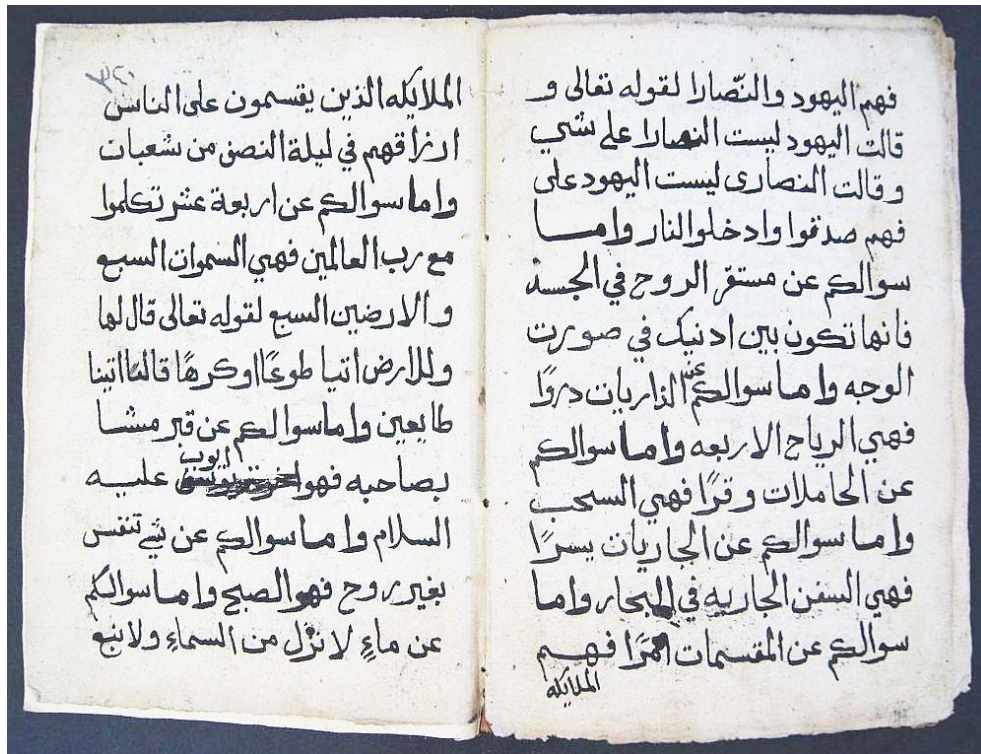 فهم اليهود والنّصارا لقوله تعالى و
قالت اليهود ليست النصارا على شي
وقالت النصارى ليست اليهود على
فهم صدقوا وادخلوا النار واما
سوالكم عن مستقرّ الروح في الجسد
فانها تكون بين ادنيك في صورت
الوجه واما سوالكم عن الذاريات دروًا
فهي الرياح الاربعه واما سوالكم
عن الحاملات وقرًا فهي السحب
واما سوالكم عن الجاريات يسرًا
فهي السفن الجاريه في البحار واما
سوالكم عن المقسمات امرًا فهم
الملايكه
٣٤٠
الملايكه الذين يقسمون على الناس
ارزاقهم في ليلة النصف من شعبان
واما سوالكم عن اربعة عشر تكلموا
مع رب العالمين فهي السموات السبع
والارضين السبع لقوله تعالى قال لها
وللارض اتيا طوعًا اوكرهًا قالتا اتينا
طايعين واما سوالكم عن قبر مشا
بصاحبه فهو ايوب عليه
السلام واما سوالكم عن شي تنفس
بغير روح فهو الصبح واما سوالكم
عن ماءٍ لا نزل من السماءِ ولا نبع